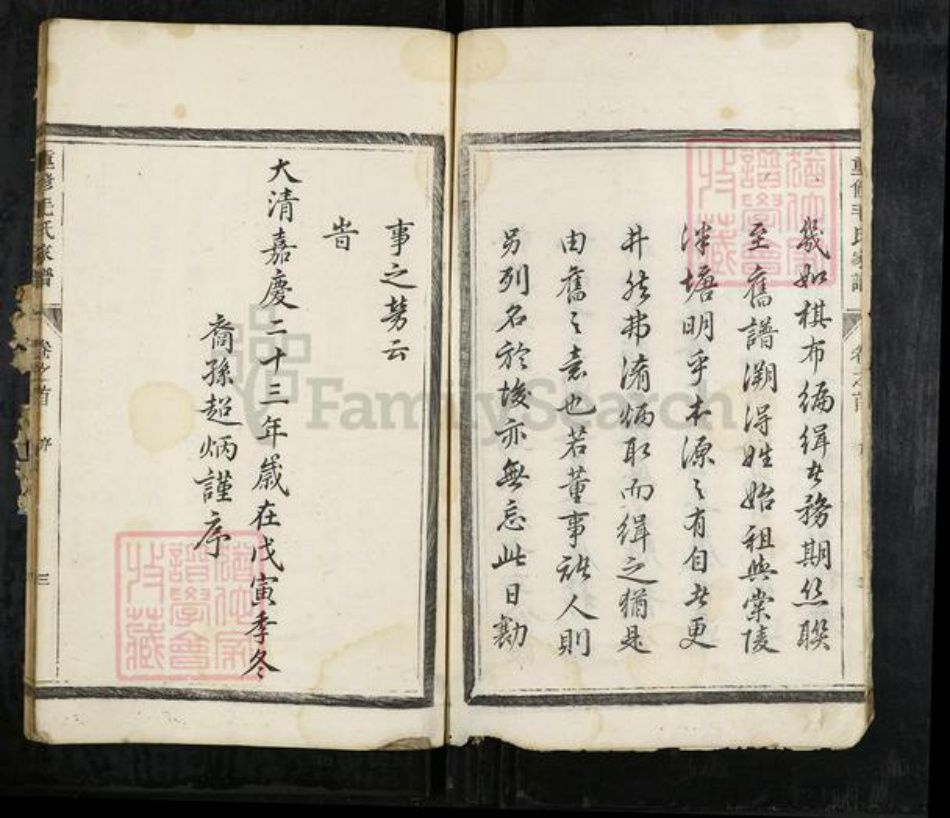 重修毛氏家譜
卷之首
幾如棋布編緝者務期丝聯
至舊譜溯得姓始祖與棠陵
泮塘明乎本源之有自者更
井然弗淆炳取而緝之猶是
由舊之意也若董事諸人則
另列名於後亦無忘此日勷
事之勞云
旹
大清嘉慶二十三年歲在戊寅季冬
裔孫超炳謹序
重修毛氏家譜
卷之首 序
三
FamilySearch